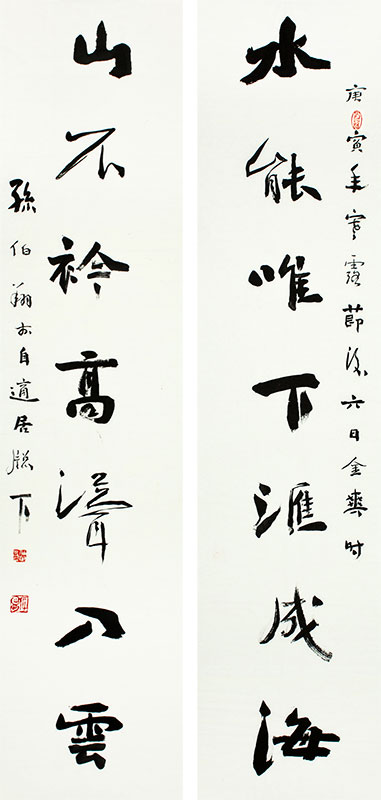 庚寅年寒露節後六日金華时
水能唯下滙成海
山不衿高聳入雲
孫伯翔於自適居牕下